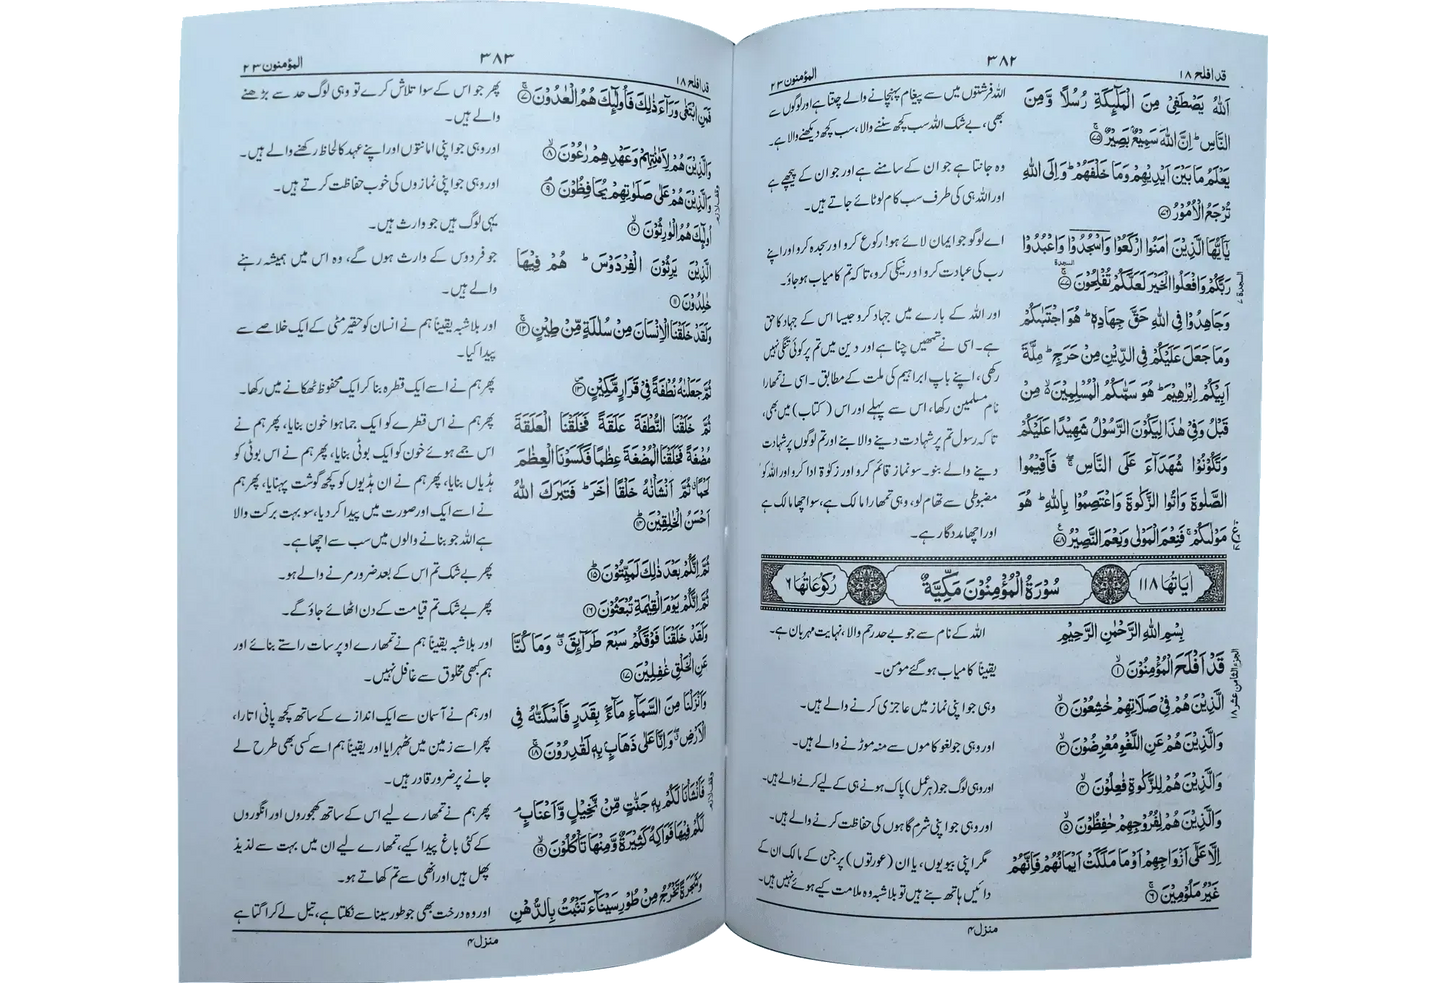 قد افلح ۱۸
۳۸۲
المؤمنون ۲۳
اَللّٰهُ يَصْطَفِيْ مِنَ الْمَلٰٓئِكَةِ رُسُلًا وَّمِنَ
النَّاسِ ؕ اِنَّ اللّٰهَ سَمِيْعٌۢ بَصِيْرٌ ﴿۷۵﴾
يَعْلَمُ مَا بَيْنَ اَيْدِيْهِمْ وَمَا خَلْفَهُمْ ؕ وَاِلَى اللّٰهِ
تُرْجَعُ الْاُمُوْرُ ﴿۷۶﴾
يٰۤاَيُّهَا الَّذِيْنَ اٰمَنُوا ارْكَعُوْا وَاسْجُدُوْا وَاعْبُدُوْا
رَبَّكُمْ وَافْعَلُوا الْخَيْرَ لَعَلَّكُمْ تُفْلِحُوْنَ ﴿۷۷﴾
وَجَاهِدُوْا فِي اللّٰهِ حَقَّ جِهَادِهٖ ؕ هُوَ اجْتَبٰىكُمْ
وَمَا جَعَلَ عَلَيْكُمْ فِي الدِّيْنِ مِنْ حَرَجٍ ؕ مِلَّةَ
اَبِيْكُمْ اِبْرٰهِيْمَ ؕ هُوَ سَمّٰىكُمُ الْمُسْلِمِيْنَ ۙ مِنْ
قَبْلُ وَفِيْ هٰذَا لِيَكُوْنَ الرَّسُوْلُ شَهِيْدًا عَلَيْكُمْ
وَتَكُوْنُوْا شُهَدَآءَ عَلَى النَّاسِ ۖ فَاَقِيْمُوا
الصَّلٰوةَ وَاٰتُوا الزَّكٰوةَ وَاعْتَصِمُوْا بِاللّٰهِ ؕ هُوَ
مَوْلٰىكُمْ ۚ فَنِعْمَ الْمَوْلٰى وَنِعْمَ النَّصِيْرُ ﴿۷۸﴾
اللہ فرشتوں میں سے پیغام پہنچانے والے چنتا ہے اور لوگوں سے
بھی، بے شک اللہ سب کچھ سننے والا، سب کچھ دیکھنے والا ہے۔
وہ جانتا ہے جو ان کے سامنے ہے اور جو ان کے پیچھے ہے
اور اللہ ہی کی طرف سب کام لوٹائے جاتے ہیں۔
اے لوگو جو ایمان لائے ہو! رکوع کرو اور سجدہ کرو اور اپنے
رب کی عبادت کرو اور نیکی کرو، تاکہ تم کامیاب ہو جاؤ۔
اور اللہ کے بارے میں جہاد کرو جیسا اس کے جہاد کا حق
ہے۔ اسی نے تمھیں چنا ہے اور دین میں تم پر کوئی تنگی نہیں
رکھی، اپنے باپ ابراہیم کی ملت کے مطابق۔ اسی نے تمھارا
نام مسلمین رکھا، اس سے پہلے اور اس (کتاب) میں بھی،
تاکہ رسول تم پر شہادت دینے والا بنے اور تم لوگوں پر شہادت
دینے والے بنو۔ سو نماز قائم کرو اور زکوٰۃ ادا کرو اور اللہ کو
مضبوطی سے تھام لو، وہی تمھارا مالک ہے، سو اچھا مالک ہے
اور اچھا مددگار ہے۔
اٰيَاتُهَا ۱۱۸
سُوْرَةُ الْمُؤْمِنُوْنَ مَكِّيَّةٌ
رُكُوْعَاتُهَا ۶
بِسْمِ اللّٰهِ الرَّحْمٰنِ الرَّحِيْمِ
قَدْ اَفْلَحَ الْمُؤْمِنُوْنَ ﴿۱﴾
الَّذِيْنَ هُمْ فِيْ صَلَاتِهِمْ خٰشِعُوْنَ ﴿۲﴾
وَالَّذِيْنَ هُمْ عَنِ اللَّغْوِ مُعْرِضُوْنَ ﴿۳﴾
وَالَّذِيْنَ هُمْ لِلزَّكٰوةِ فٰعِلُوْنَ ﴿۴﴾
وَالَّذِيْنَ هُمْ لِفُرُوْجِهِمْ حٰفِظُوْنَ ﴿۵﴾
اِلَّا عَلٰۤى اَزْوَاجِهِمْ اَوْ مَا مَلَكَتْ اَيْمَانُهُمْ فَاِنَّهُمْ
غَيْرُ مَلُوْمِيْنَ ﴿۶﴾
اللہ کے نام سے جو بے حد رحم والا، نہایت مہربان ہے۔
یقینا کامیاب ہو گئے مومن۔
وہی جو اپنی نماز میں عاجزی کرنے والے ہیں۔
اور وہی جو لغو کاموں سے منہ موڑنے والے ہیں۔
اور وہی لوگ جو (ہر عمل) پاک ہونے ہی کے لیے کرنے والے ہیں۔
اور وہی جو اپنی شرم گاہوں کی حفاظت کرنے والے ہیں۔
مگر اپنی بیویوں، یا ان (عورتوں) پر جن کے مالک ان کے
دائیں ہاتھ بنے ہیں تو بلاشبہ وہ ملامت کیے ہوئے نہیں ہیں۔
منزل ۴
قد افلح ۱۸
۳۸۳
المؤمنون ۲۳
فَمَنِ ابْتَغٰى وَرَآءَ ذٰلِكَ فَاُولٰٓئِكَ هُمُ الْعٰدُوْنَ ﴿۷﴾
وَالَّذِيْنَ هُمْ لِاَمٰنٰتِهِمْ وَعَهْدِهِمْ رٰعُوْنَ ﴿۸﴾
وَالَّذِيْنَ هُمْ عَلٰى صَلَوٰتِهِمْ يُحَافِظُوْنَ ﴿۹﴾
اُولٰٓئِكَ هُمُ الْوٰرِثُوْنَ ﴿۱۰﴾
الَّذِيْنَ يَرِثُوْنَ الْفِرْدَوْسَ ؕ هُمْ فِيْهَا
خٰلِدُوْنَ ﴿۱۱﴾
وَلَقَدْ خَلَقْنَا الْاِنْسَانَ مِنْ سُلٰلَةٍ مِّنْ طِيْنٍ ﴿۱۲﴾
ثُمَّ جَعَلْنٰهُ نُطْفَةً فِيْ قَرَارٍ مَّكِيْنٍ ﴿۱۳﴾
ثُمَّ خَلَقْنَا النُّطْفَةَ عَلَقَةً فَخَلَقْنَا الْعَلَقَةَ
مُضْغَةً فَخَلَقْنَا الْمُضْغَةَ عِظٰمًا فَكَسَوْنَا الْعِظٰمَ
لَحْمًا ۗ ثُمَّ اَنْشَاْنٰهُ خَلْقًا اٰخَرَ ؕ فَتَبٰرَكَ اللّٰهُ
اَحْسَنُ الْخٰلِقِيْنَ ﴿۱۴﴾
ثُمَّ اِنَّكُمْ بَعْدَ ذٰلِكَ لَمَيِّتُوْنَ ﴿۱۵﴾
ثُمَّ اِنَّكُمْ يَوْمَ الْقِيٰمَةِ تُبْعَثُوْنَ ﴿۱۶﴾
وَلَقَدْ خَلَقْنَا فَوْقَكُمْ سَبْعَ طَرَآئِقَ ۖ وَمَا كُنَّا
عَنِ الْخَلْقِ غٰفِلِيْنَ ﴿۱۷﴾
وَاَنْزَلْنَا مِنَ السَّمَآءِ مَآءًۢ بِقَدَرٍ فَاَسْكَنّٰهُ فِي
الْاَرْضِ ۖ وَاِنَّا عَلٰى ذَهَابٍۢ بِهٖ لَقٰدِرُوْنَ ﴿۱۸﴾
فَاَنْشَاْنَا لَكُمْ بِهٖ جَنّٰتٍ مِّنْ نَّخِيْلٍ وَّاَعْنَابٍ ۘ
لَكُمْ فِيْهَا فَوَاكِهُ كَثِيْرَةٌ وَّمِنْهَا تَاْكُلُوْنَ ﴿۱۹﴾
وَشَجَرَةً تَخْرُجُ مِنْ طُوْرِ سَيْنَآءَ تَنْۢبُتُ بِالدُّهْنِ
پھر جو اس کے سوا تلاش کرے تو وہی لوگ حد سے بڑھنے
والے ہیں۔
اور وہی جو اپنی امانتوں اور اپنے عہد کا لحاظ رکھنے والے ہیں۔
اور وہی جو اپنی نمازوں کی خوب حفاظت کرتے ہیں۔
یہی لوگ ہیں جو وارث ہیں۔
جو فردوس کے وارث ہوں گے، وہ اس میں ہمیشہ رہنے
والے ہیں۔
اور بلاشبہ یقیناً ہم نے انسان کو حقیر مٹی کے ایک خلاصے سے
پیدا کیا۔
پھر ہم نے اسے ایک قطرہ بنا کر ایک محفوظ ٹھکانے میں رکھا۔
پھر ہم نے اس قطرے کو ایک جما ہوا خون بنایا، پھر ہم نے
اس جمے ہوئے خون کو ایک بوٹی بنایا، پھر ہم نے اس بوٹی کو
ہڈیاں بنایا، پھر ہم نے ان ہڈیوں کو کچھ گوشت پہنایا، پھر ہم
نے اسے ایک اور صورت میں پیدا کر دیا، سو بہت برکت والا
ہے اللہ جو بنانے والوں میں سب سے اچھا ہے۔
پھر بے شک تم اس کے بعد ضرور مرنے والے ہو۔
پھر بے شک تم قیامت کے دن اٹھائے جاؤ گے۔
اور بلاشبہ یقیناً ہم نے تمھارے اوپر سات راستے بنائے اور
ہم کبھی مخلوق سے غافل نہیں۔
اور ہم نے آسمان سے ایک اندازے کے ساتھ کچھ پانی اتارا،
پھر اسے زمین میں ٹھہرایا اور یقیناً ہم اسے کسی بھی طرح لے
جانے پر ضرور قادر ہیں۔
پھر ہم نے تمھارے لیے اس کے ساتھ کھجوروں اور انگوروں
کے کئی باغ پیدا کیے، تمھارے لیے ان میں بہت سے لذیذ
پھل ہیں اور انھی سے تم کھاتے ہو۔
اور وہ درخت بھی جو طور سینا سے نکلتا ہے، تیل لے کر اگتا ہے
منزل ۴